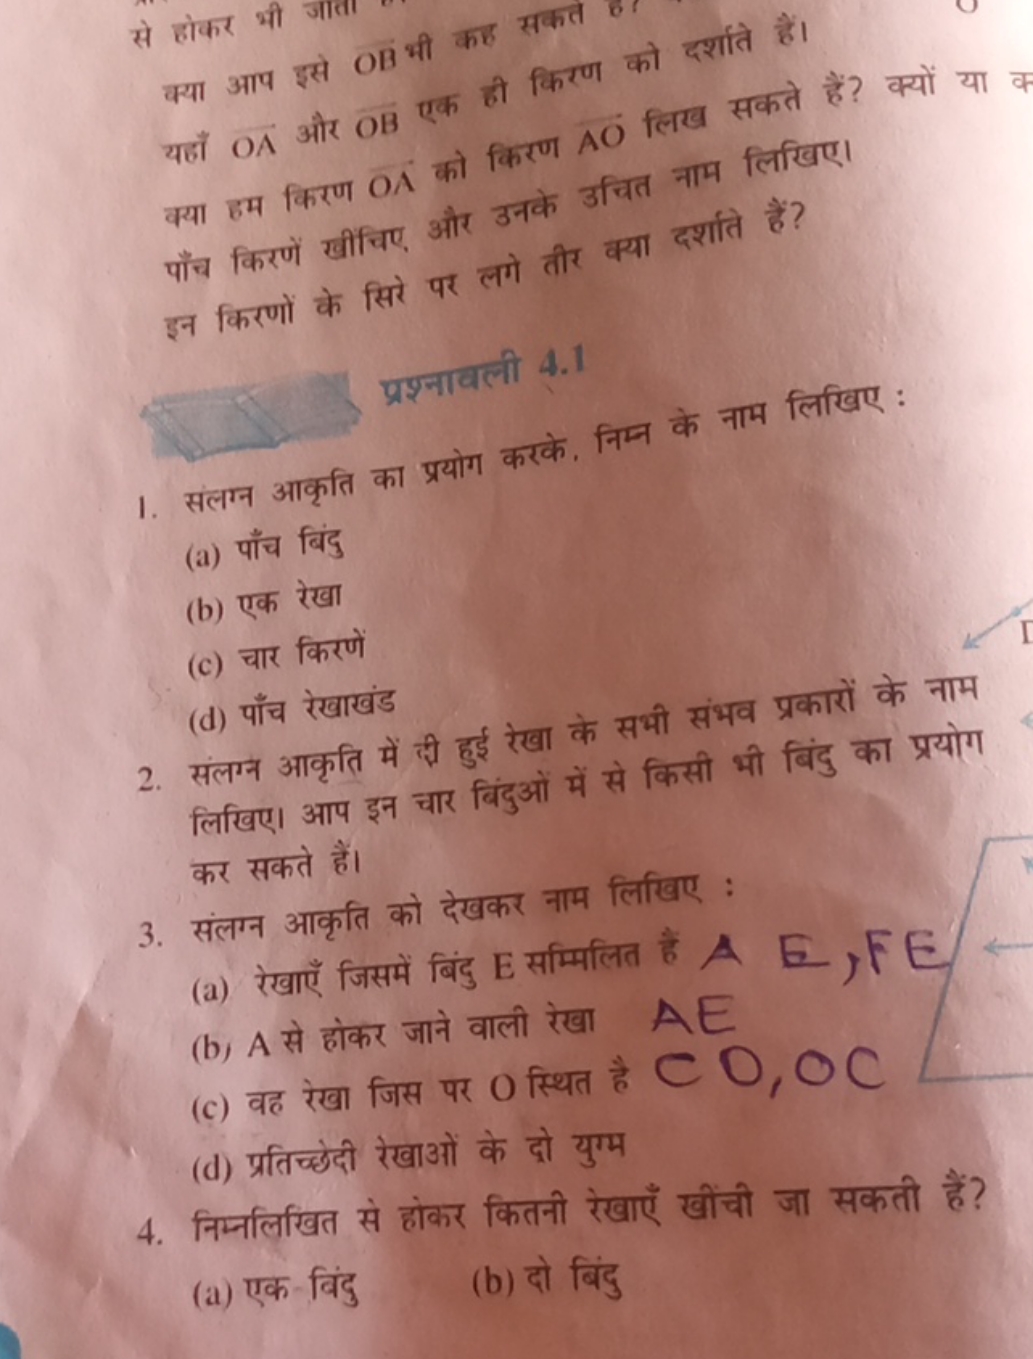 से होकर भी जाता
क्या आप इसे OB भी कह सकते हैं?
यहाँ OA और OB एक ही किरण को दर्शाते हैं।
क्या हम किरण OA को किरण AO लिख सकते हैं? क्यों या
पाँच किरणें खींचिए और उनके उचित नाम लिखिए।
इन किरणों के सिरे पर लगे तीर क्या दर्शाते हैं?
प्रश्नावली 4.1
1. संलग्न आकृति का प्रयोग करके, निम्न के नाम लिखिए :
(a) पाँच बिंदु
(b) एक रेखा
(c) चार किरणें
(d) पाँच रेखाखंड
2. संलग्न आकृति में दी हुई रेखा के सभी संभव प्रकारों के नाम
लिखिए। आप इन चार बिंदुओं में से किसी भी बिंदु का प्रयोग
कर सकते हैं।
3. संलग्न आकृति को देखकर नाम लिखिए :
(a) रेखाएँ जिसमें बिंदु E सम्मिलित है A E, FE
(b) A से होकर जाने वाली रेखा AE
(c) वह रेखा जिस पर O स्थित है CO, OC
(d) प्रतिच्छेदी रेखाओं के दो युग्म
4. निम्नलिखित से होकर कितनी रेखाएँ खींची जा सकती हैं?
(a) एक बिंदु (b) दो बिंदु